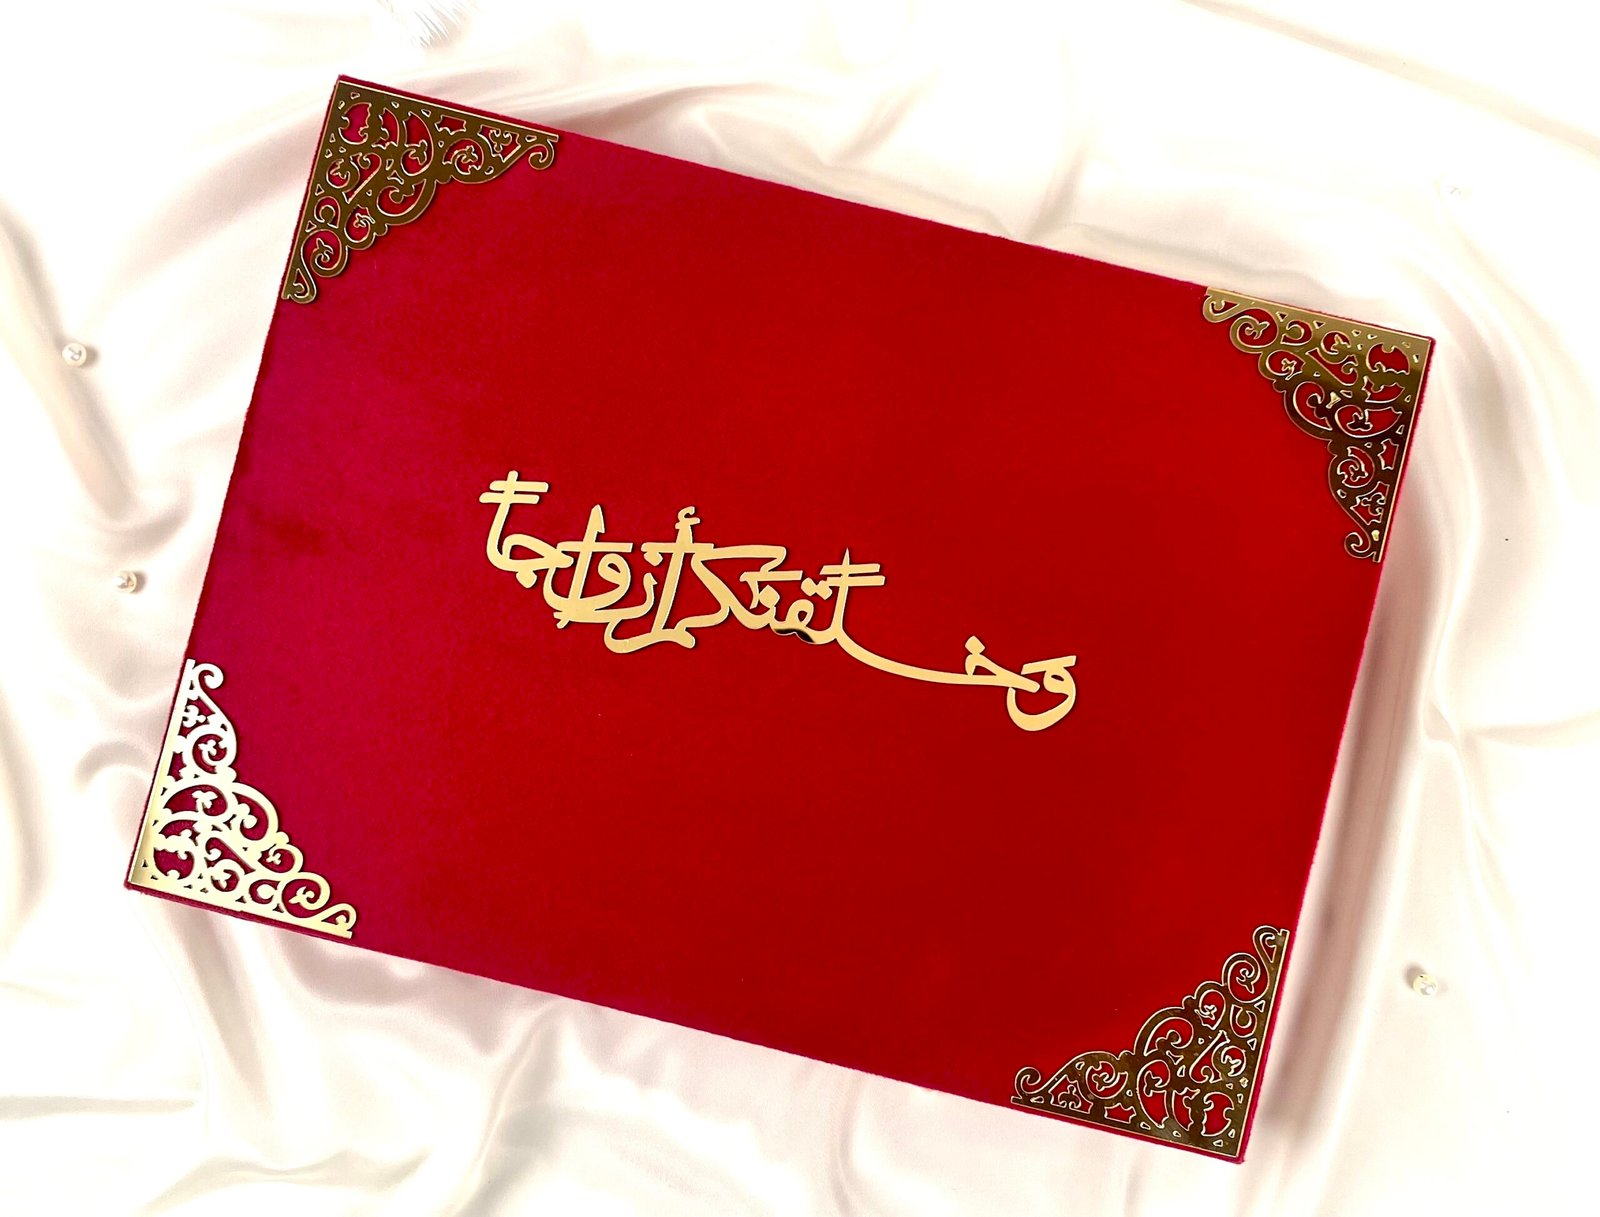 وخلقنكم أزواجا